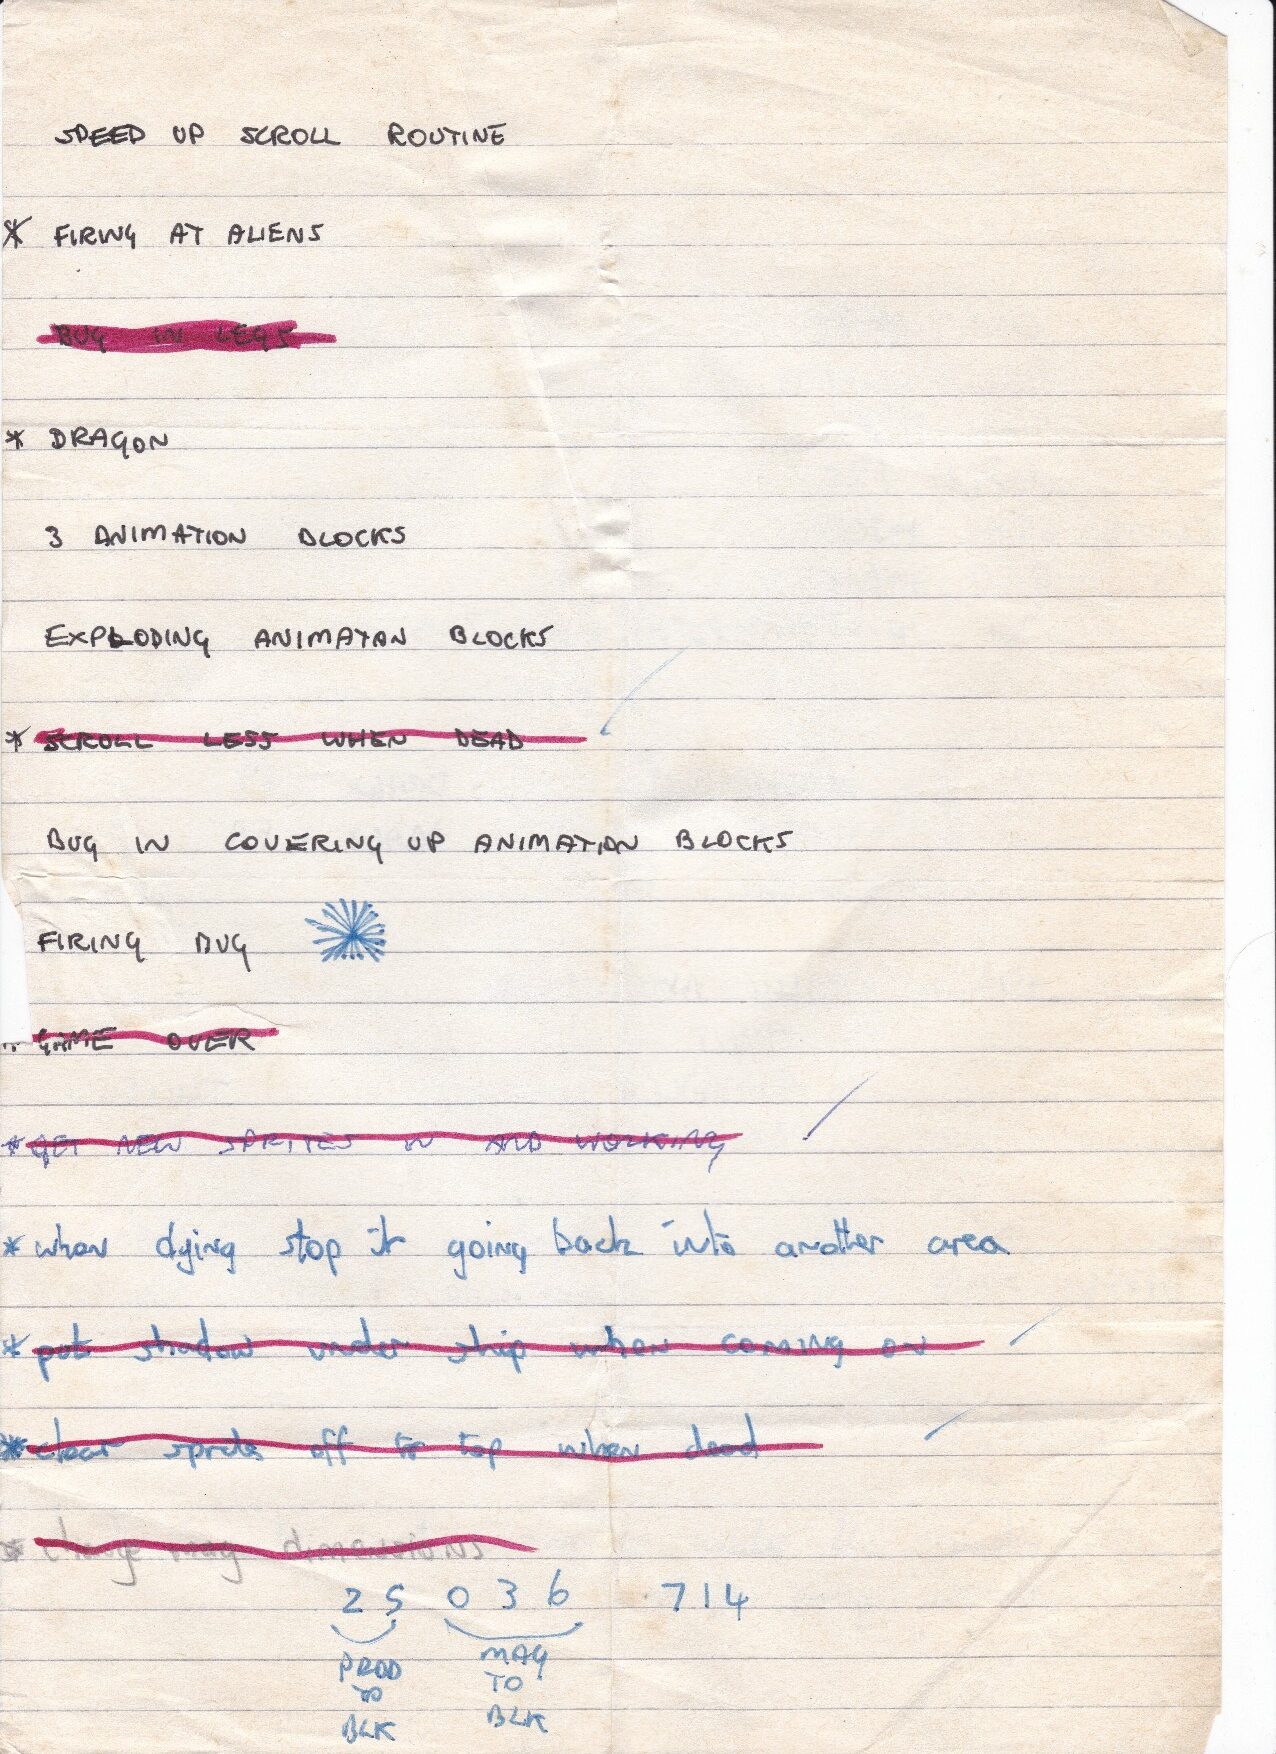 SPEED UP SCROLL ROUTINE
* FIRING AT ALIENS
BUG IN LEGS
* DRAGON
3 ANIMATION BLOCKS
EXPLODING ANIMATAN BLOCKS
* SCROLL LESS WHEN DEAD
BUG IN COVERING UP ANIMATION BLOCKS
FIRING BUG
GAME OVER
* GET NEW SPRITES IN AND WORKING
* when dying stop it going back into another area
* put shadow under ship when coming on
* clear sprites off to top when dead
* change map dimensions
25 036 714
PROD MAG
TO TO
BLK BLK